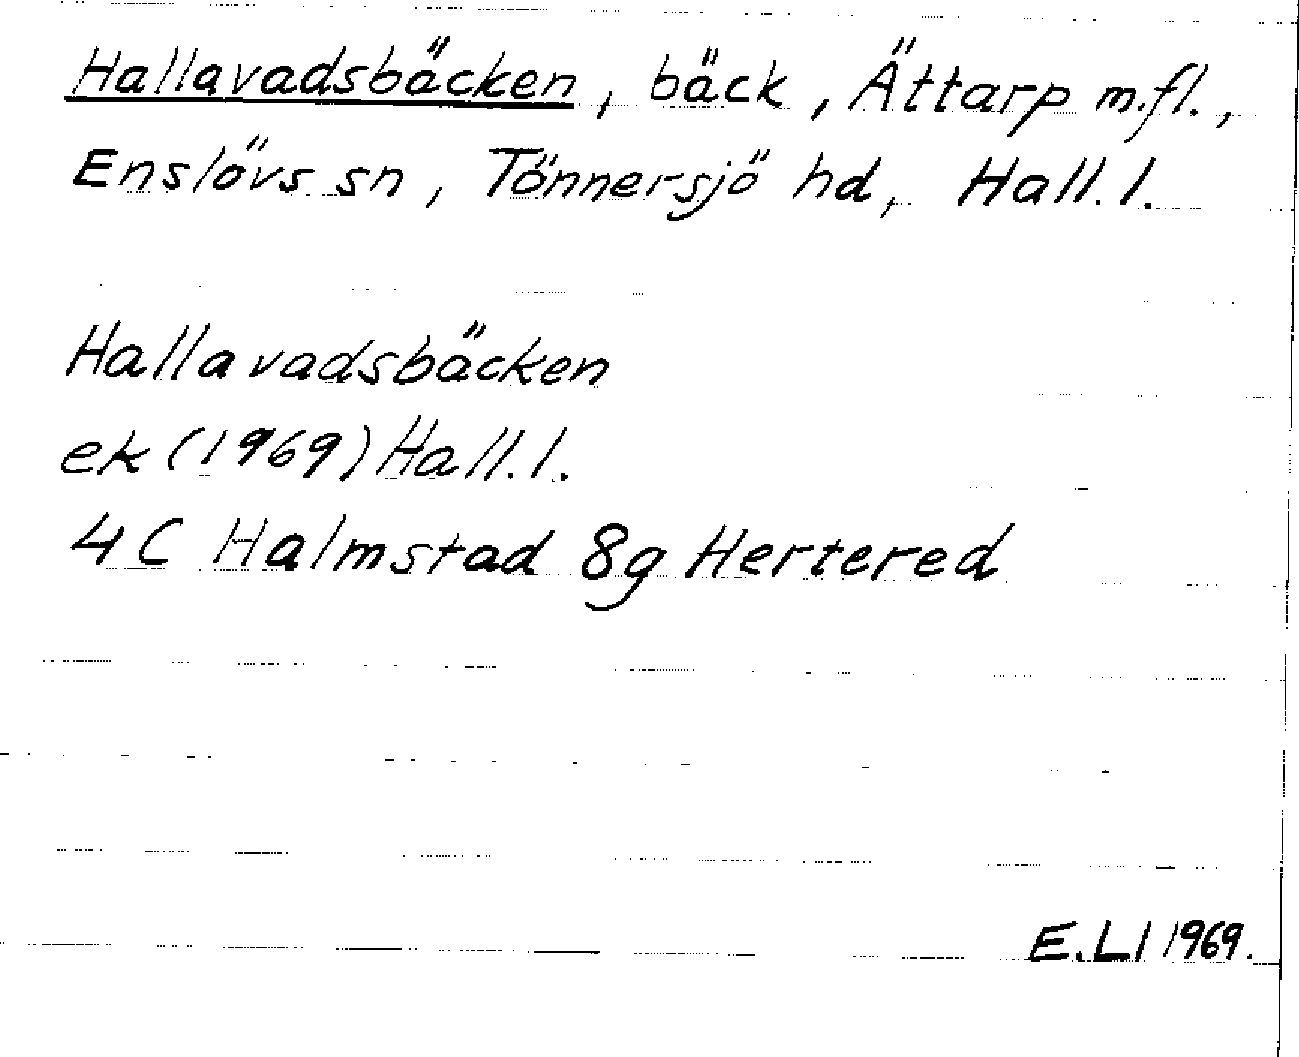 Hallavadsbäcken, bäck, Ättarp m.fl.,
Enslövs sn, Tönnersjö hd, Hall. l.
Hallavadsbäcken
ek (1969) Hall. l.
4C Halmstad 8g Hertered
E.Ll 1969.